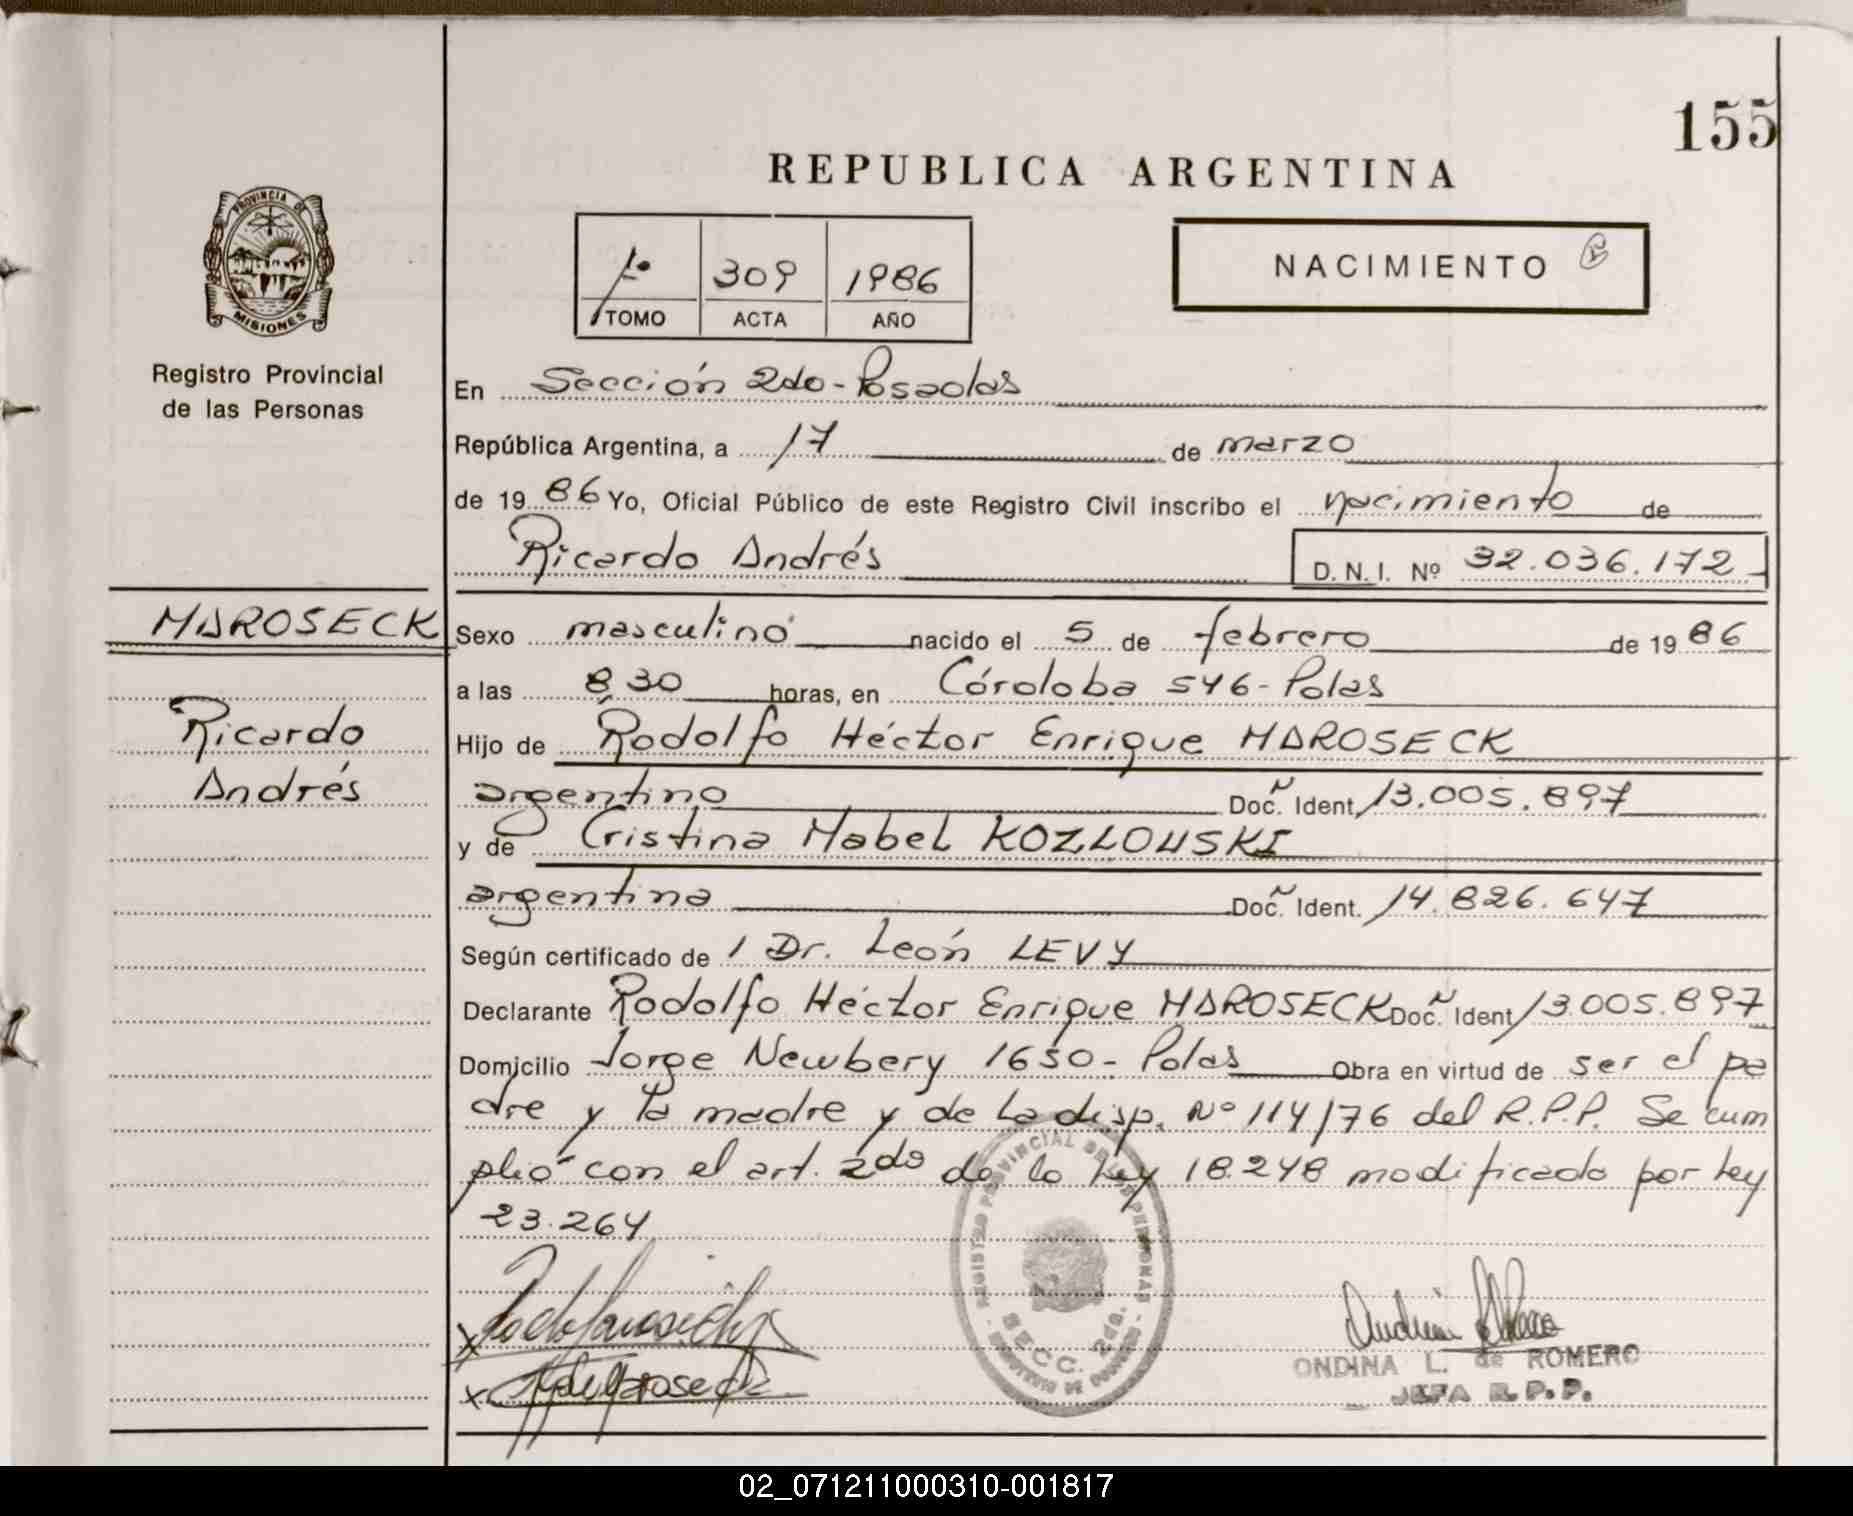 155
REPUBLICA ARGENTINA
PROVINCIA DE
MISIONES
Registro Provincial
de las Personas
1º 309 1986
TOMO ACTA AÑO
NACIMIENTO
En Sección 2do - Posadas
República Argentina, a 17 de marzo
de 1986 Yo, Oficial Público de este Registro Civil inscribo el nacimiento de
Ricardo Andrés D.N.I. Nº 32.036.172
MAROSECK
Ricardo
Andrés
Sexo masculino nacido el 5 de febrero de 1986
a las 8,30 horas, en Córdoba 546 - Pdas
Hijo de Rodolfo Héctor Enrique MAROSECK
argentino Doc. Ident. 13.005.897
y de Cristina Mabel KOZLOWSKI
argentina Doc. Ident. 14.826.647
Según certificado de 1 Dr. León LEVY
Declarante Rodolfo Héctor Enrique MAROSECK Doc. Ident. 13.005.897
Domicilio Jorge Newbery 1650 - Pdas Obra en virtud de ser el pa
dre y la madre y de la disp. Nº 114/76 del R.P.P. Se cum
plió con el art. 2do de la ley 18.248 modificado por ley
23.264
REGISTRO PROVINCIAL DE LAS PERSONAS
SECC. 2da.
MINISTERIO DE GOBIERNO
ONDINA L. de ROMERO
JEFA R.P.P.
02_071211000310-001817